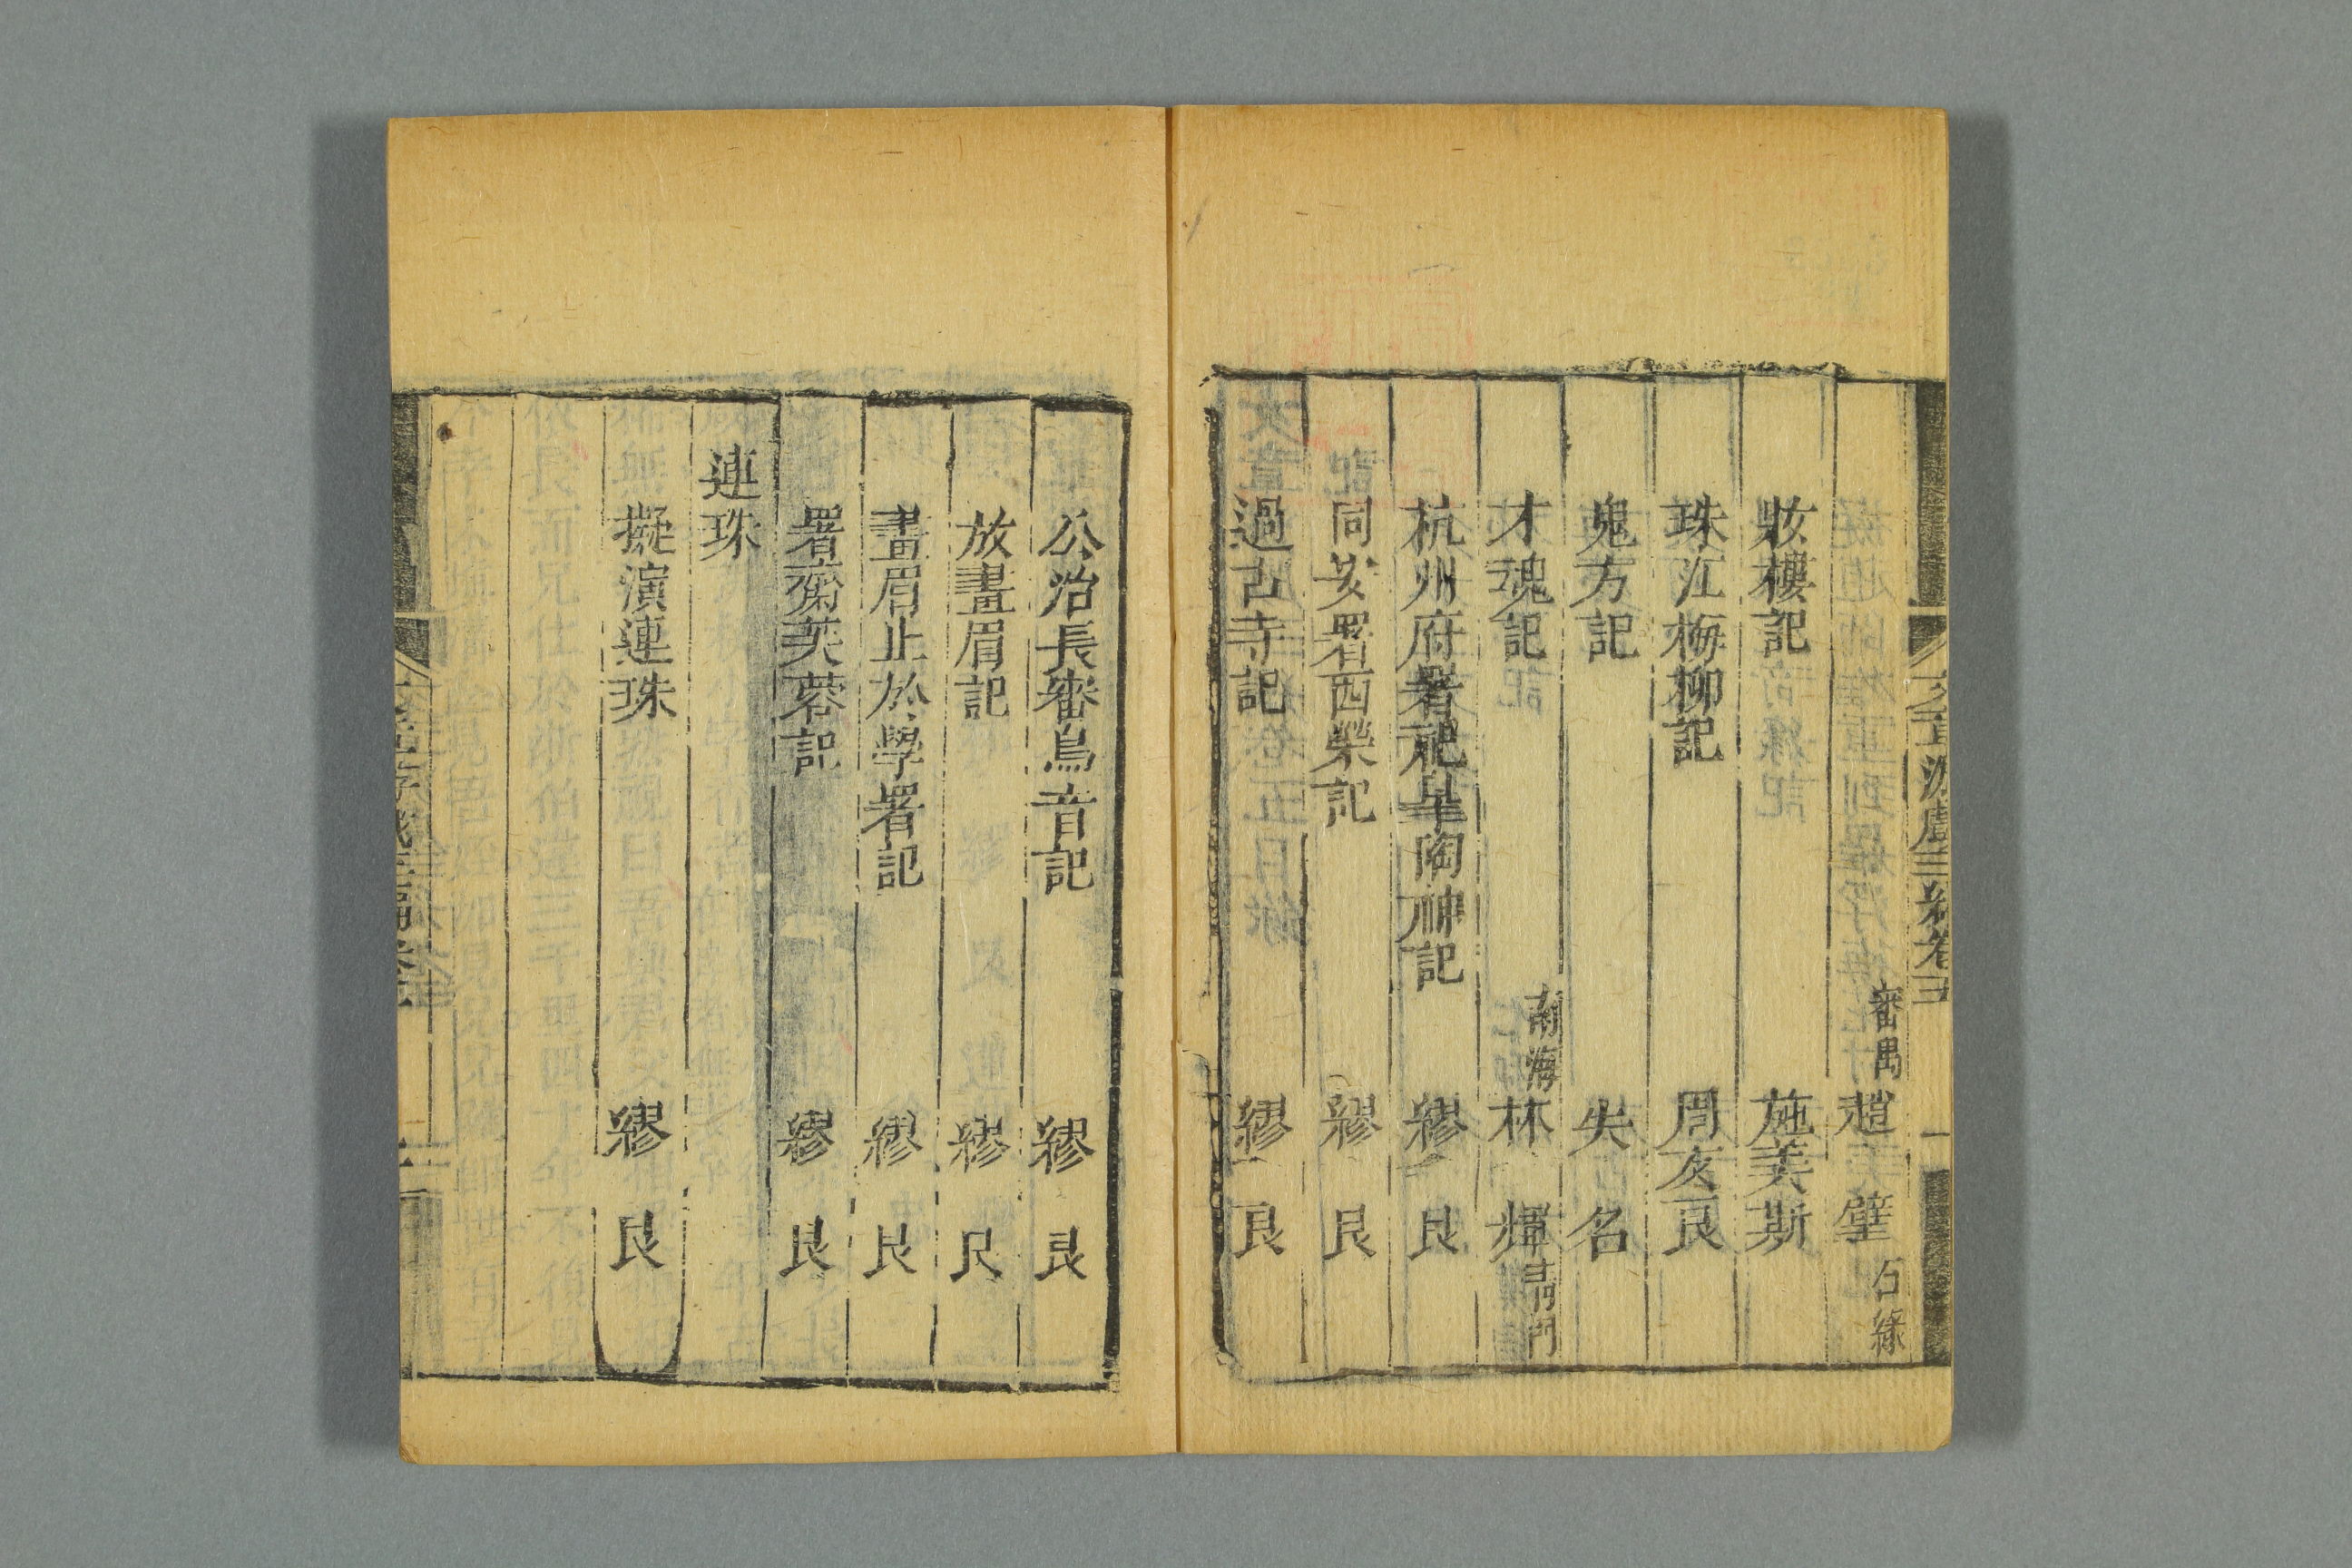 番禺趙璧石緣
妝樓記 施美斯
珠江梅柳記 周友良
鬼方記 失名
才魂記 南海林輝青門
杭州府署祀皐陶神記 繆艮
同安署西榮記 繆艮
過古寺記 繆艮
公冶長審鳥音記 繆艮
放畫眉記 繆艮
畫眉止於學署記 繆艮
署齋芙蓉記 繆艮
連珠
擬演連珠 繆艮